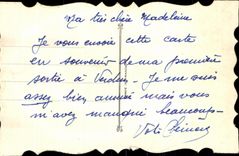 Ma très chère Madeleine
Je vous envoie cette carte
en souvenir de ma première
sortie à Verdun - Je me suis
assez bien amusé mais vous
m'avez manqué beaucoup -